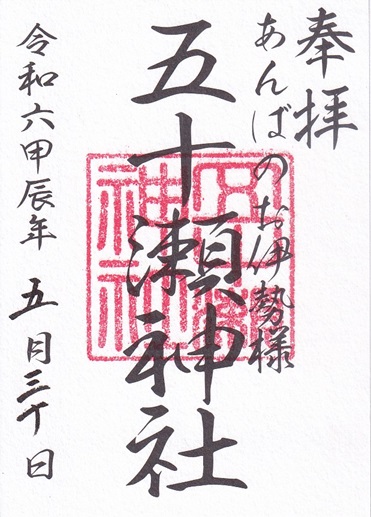 奉拝
あんばのお伊勢様
五十瀬神社
令和六甲辰年 五月三十日